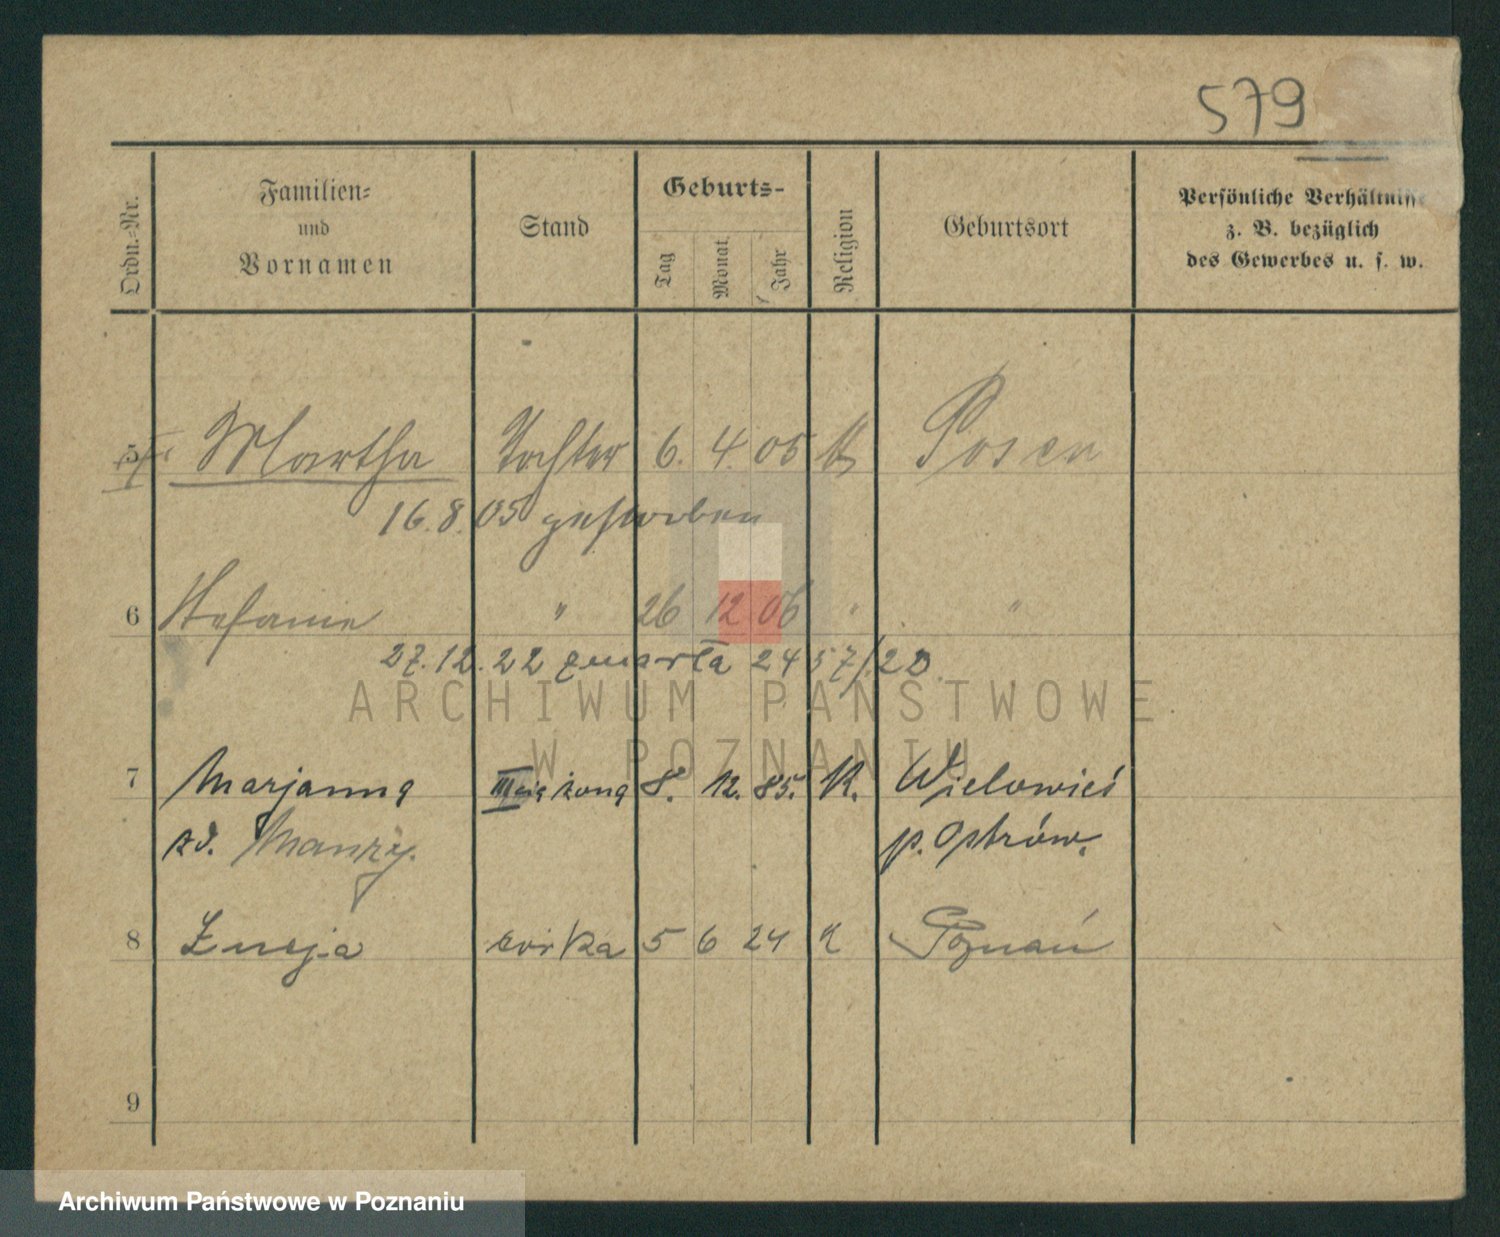 579
Ordn.-Nr.
Familien-
und
Vornamen
Stand
Geburts-
Tag
Monat
Jahr
Religion
Geburtsort
Persönliche Verhältnisse
z. B. bezüglich
des Gewerbes u. s. w.
5 Martha Tochter 6. 4. 05 K Posen
16.8.05 gestorben
6 Stefanie " 26 12 06 " "
27.12.22 zmarła 2457/22
ARCHIWUM PAŃSTWOWE
W POZNANIU
7 Marjanna III cia żona 8. 12. 85. K. Wielowieś
zd. p. Ostrów.
8 córka 5 6 24 K Poznań
9
Archiwum Państwowe w Poznaniu